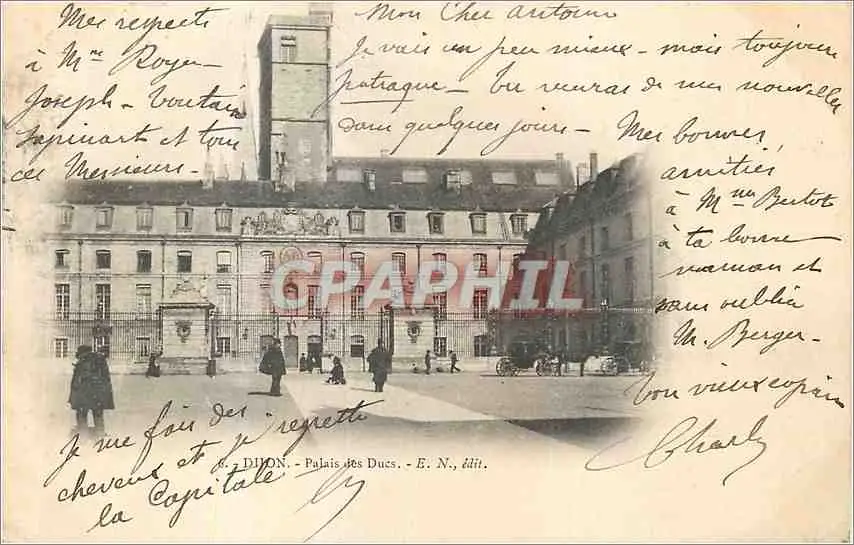 Mon Cher Antoine
Je vais un peu mieux - mais toujours
patraque - Tu verras de mes nouvelles
dans quelques jours -
Mes bonnes
amitiés
à Mme Bertot
à ta bonne
maman et
sans oublier
M. Berger -
Ton vieux copain
Charly
Mes respects
à Mme Royer -
Joseph -
et tous
ces Messieurs
CPAPHIL
Je me fais des
cheveux et je regrette
la Capitale
6. - DIJON. - Palais des Ducs. - E. N., édit.